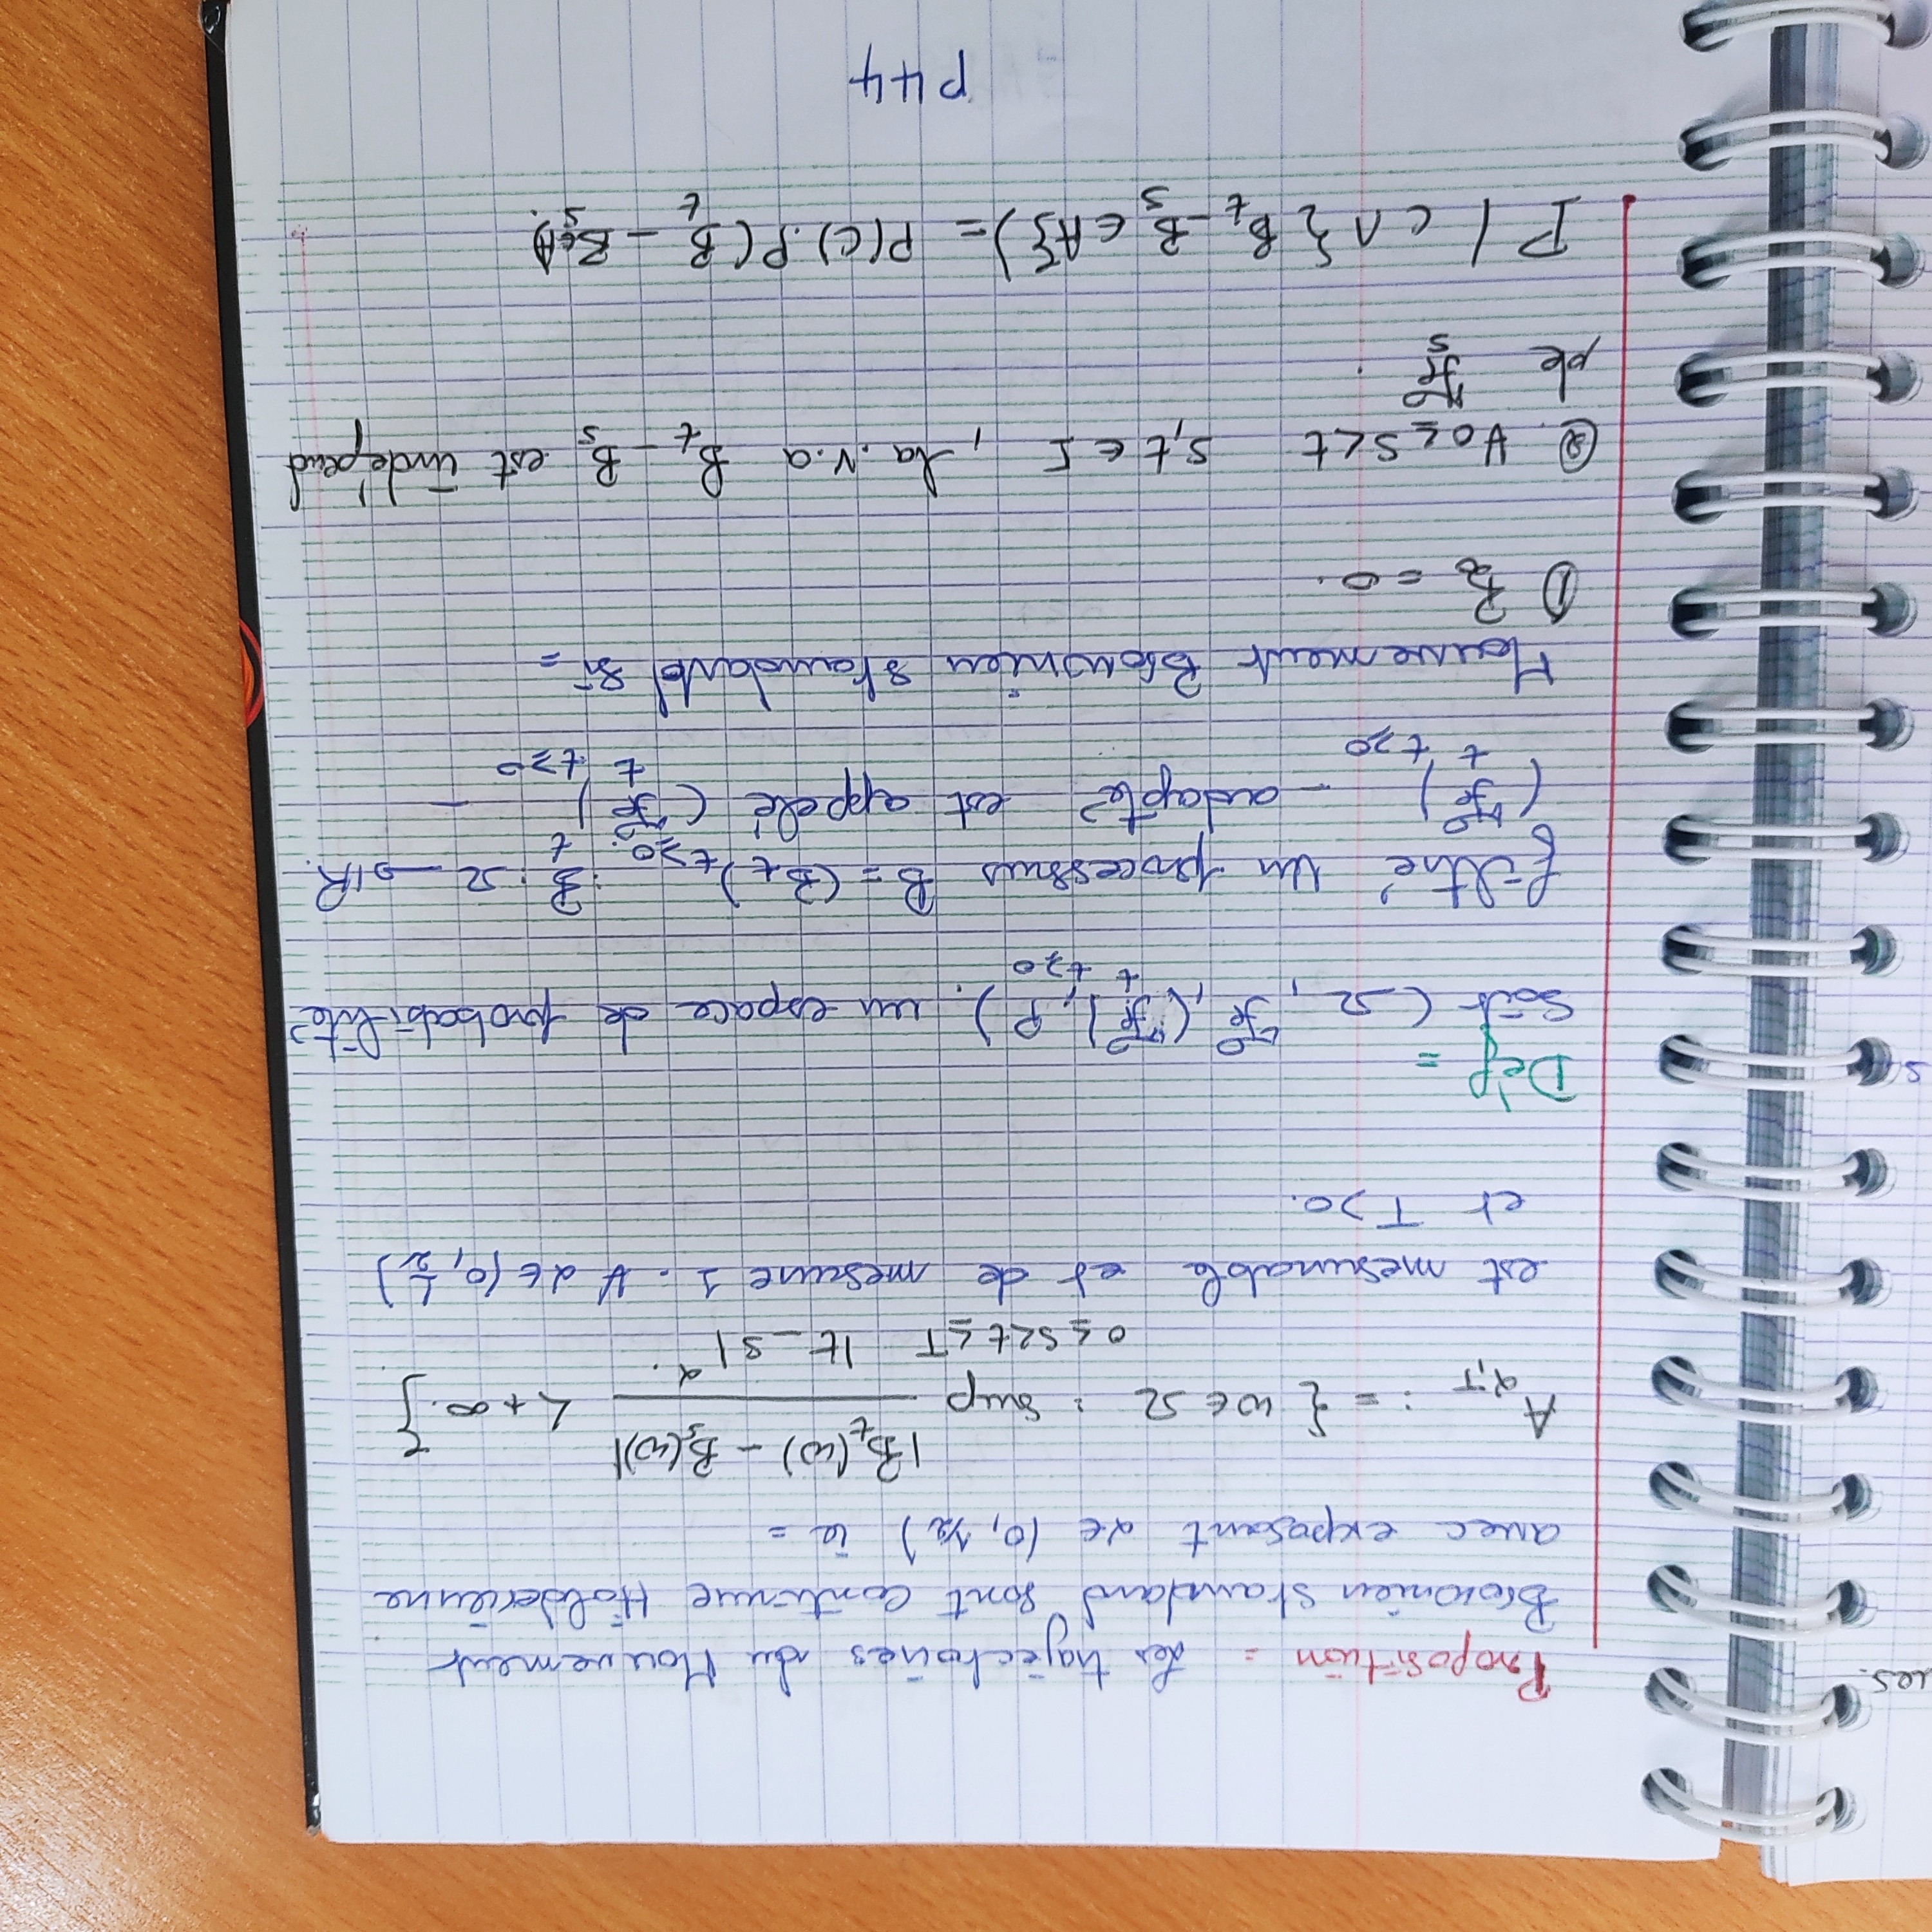 ues.
s
Proposition = Les trajectoires du Mouvement
Brownien standard sont continue Hölderiènne
avec exposant α ∈ (0, 1/2) ie =
A_{α,T} := { ω ∈ Ω : sup_{0≤s<t≤T} |B_t(ω) - B_s(ω)| / |t-s|^α. < +∞. }
est mesurable et de mesure 1. ∀ α ∈ (0, 1/2)
et T>0.
Déf =
Soit (Ω, ℱ, (ℱ_t)_{t≥0}, P). un espace de probabilité
filtré Un processus B = (B_t)_{t≥0}. : B_t : Ω → ℝ.
(ℱ_t)_{t≥0} - adapté est appelé (ℱ_t)_{t≥0} -
Mouvement Brownien standard si =
① B_0 = 0.
②. ∀ 0≤s<t s,t ∈ I , la .v.a B_t - B_s est indépend
de ℱ_s .
P( C ∩ { B_t - B_s ∈ A}) = P(C).P(B_t - B_s ∈ A).
P44